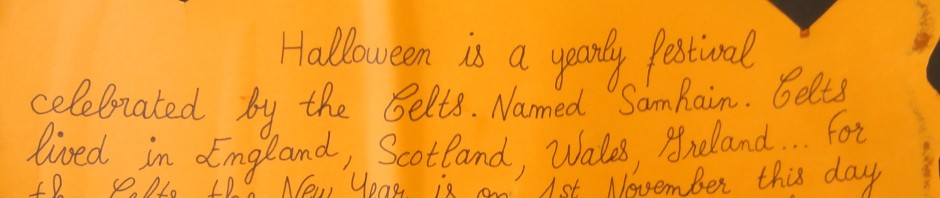 Halloween is a yearly festival
celebrated by the Celts. Named Samhain. Celts
lived in England, Scotland, Wales, Ireland... For
the Celts the New Year is on 1st November this day